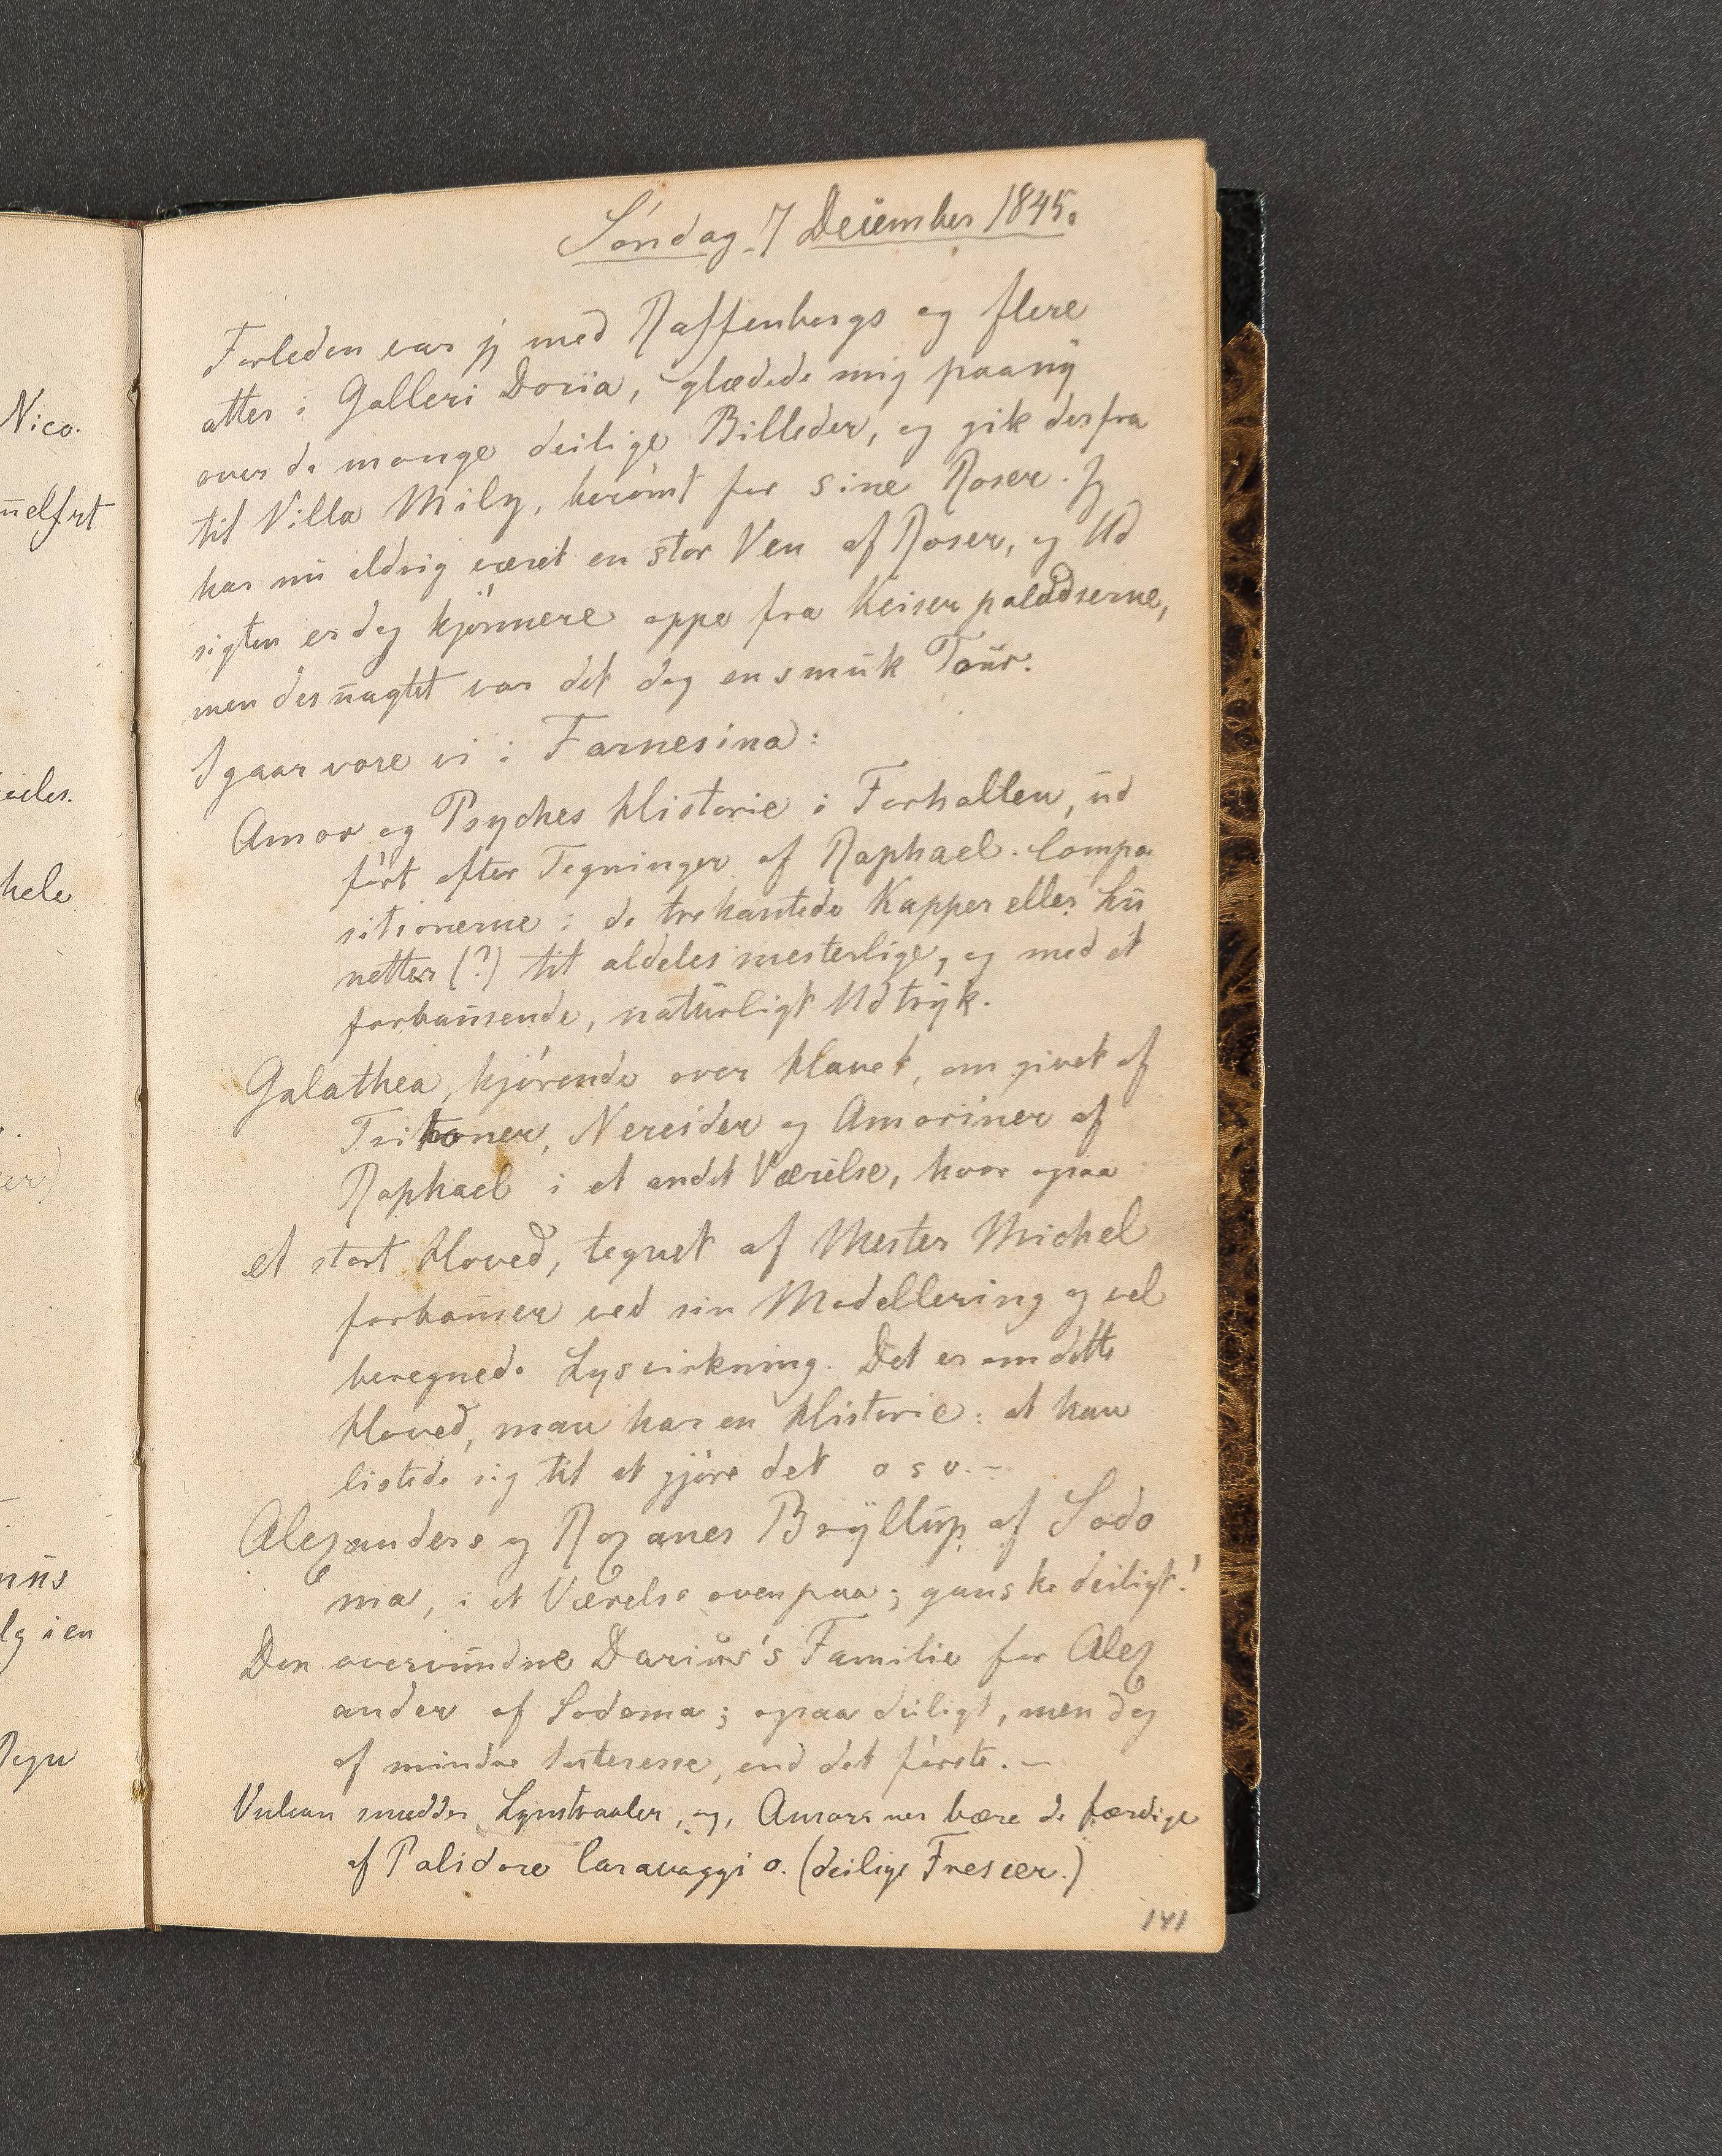 Nico.
uelfrt
hele
nus
lg i en
Søndag 7 December 1845.
Forleden var jg med Raffenbergs og flere
atter i Galleri Doria, glædede mig paany
over de mange deilige Billeder, og gik derfra
til Villa Mily, berømt for sine Roser. Jg
har nu aldrig været en stor Ven af Roser, og Ud
sigten er dog kjønnere oppe fra Keiserpaladserne,
men desuagtet var det dog en smuk Tour.
Igaar vare vi i Farnesina:
Amor og Psyches Historie i Forhallen, ud
ført efter Tegninger af Raphael. Compo
sitionerne i de trekantede Kapper eller Lu
netter (?) tit aldeles mesterlige, og med et
forbausende, naturligt Udtryk.
Galathea, kjørende over Havet, omgivet af
Tritoner, Nereider og Amoriner af
Raphael i et andet Værelse, hvor ogsaa
et stort Hoved, tegnet af Mester Michel
forbauser ved sin Modellering og vel
beregnede Lysvirkning. Det er om dette
Hoved, man har en Historie: at han
listede sig til at gjøre det o s v. –
Alexanders og Roxanes Bryllup af Sodo
ma, i et Værelse ovenpaa; ganske deiligt!
Den overvundne Darius's Familie for Alex
ander af Sodoma; ogsaa deiligt, men dog
af mindre Interesse, end det første. –
Vulcan smedder Lynstraaler, og, Amoriner bære de færdige
af Polidore Caravaggio. (deilige Frescer.)
141